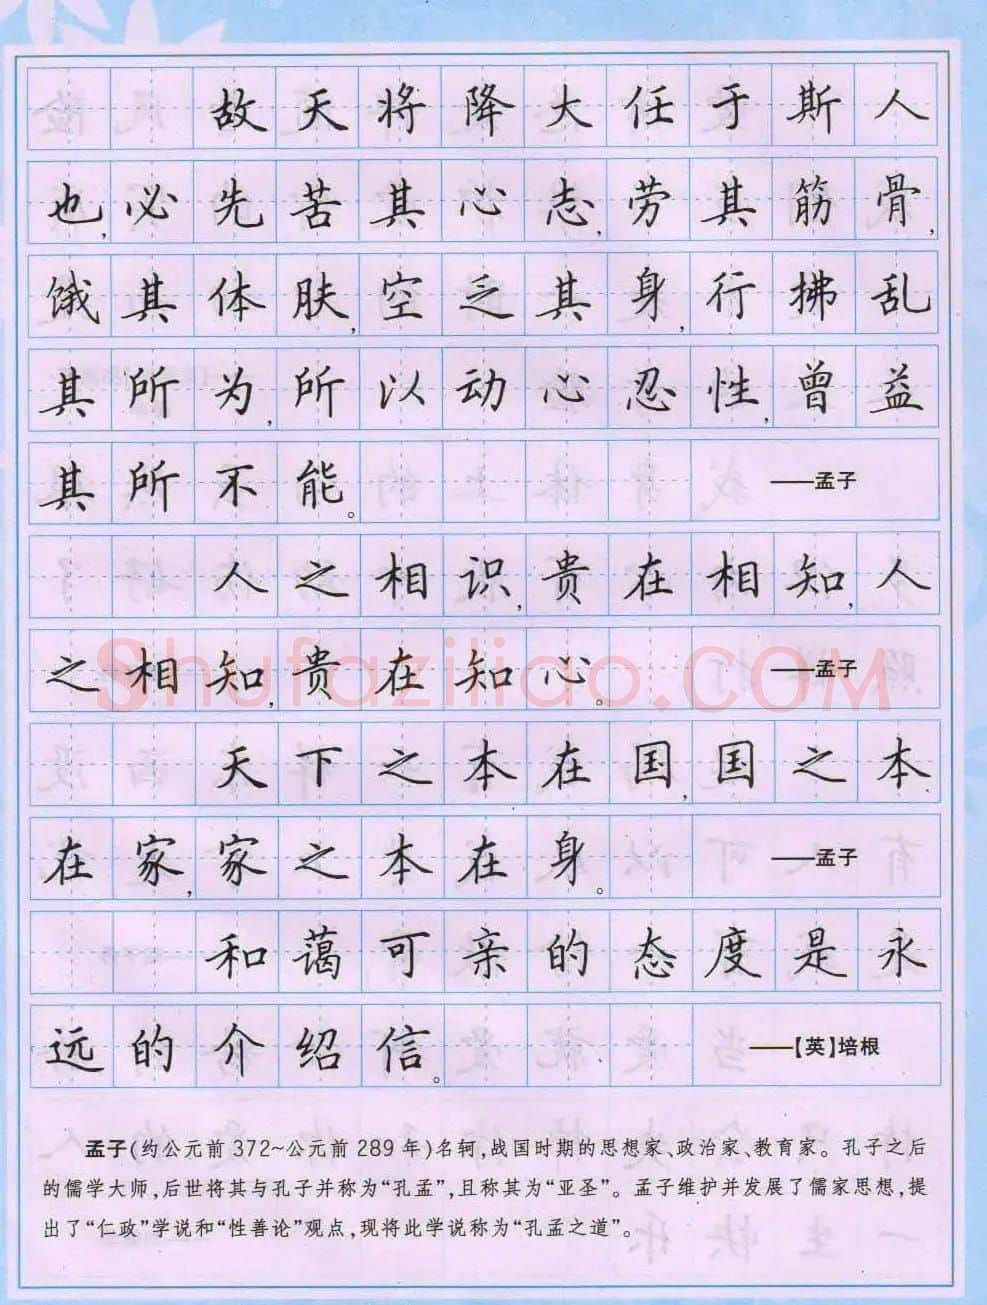 故天将降大任于斯人
也,必先苦其心志,劳其筋骨,
饿其体肤,空乏其身,行拂乱
其所为,所以动心忍性,曾益
其所不能。 ——孟子
人之相识,贵在相知,人
之相知,贵在知心。 ——孟子
天下之本在国,国之本
在家,家之本在身。 ——孟子
和蔼可亲的态度是永
远的介绍信。 ——【英】培根
孟子(约公元前372~公元前289年)名轲,战国时期的思想家、政治家、教育家。孔子之后
的儒学大师,后世将其与孔子并称为“孔孟”,且称其为“亚圣”。孟子维护并发展了儒家思想,提
出了“仁政”学说和“性善论”观点,现将此学说称为“孔孟之道”。
Shufaziliao.COM